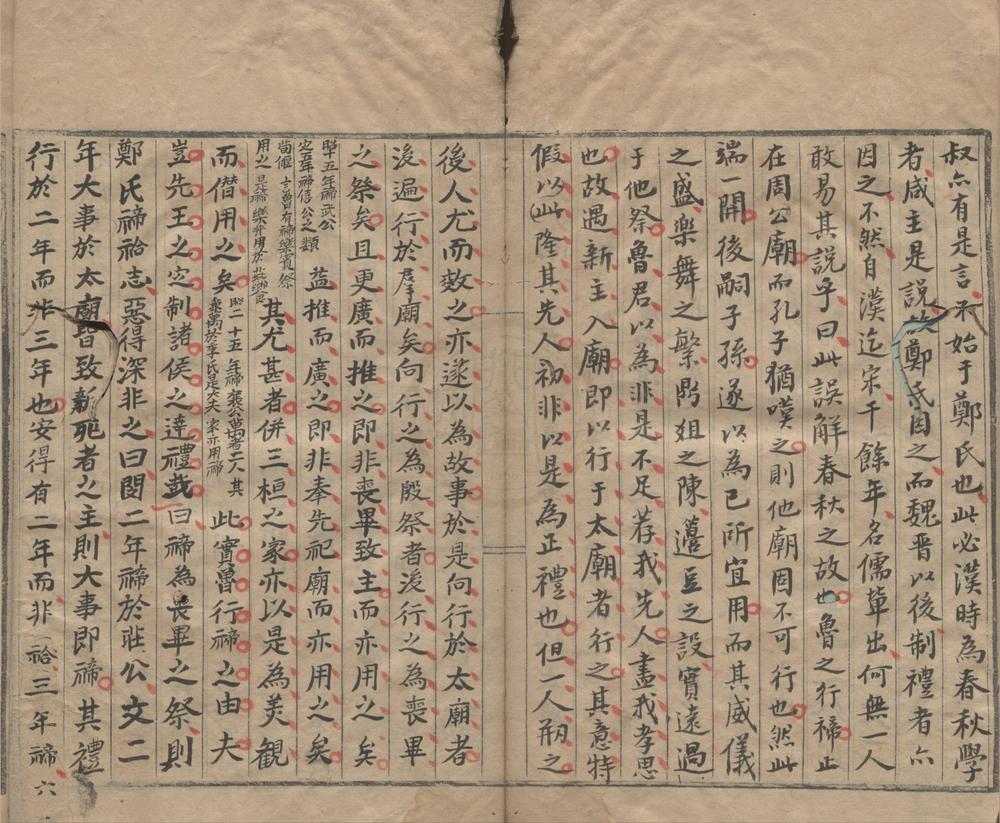 叔亦有是言不始于鄭氏也此必漢時為春秋學
者咸主是說鄭氏因之而魏晋以後制禮者亦
因之不然自漢迄宋千餘年名儒輩出何無一人
敢易其說乎曰此誤解春秋之故也魯之行禘止
在周公廟而孔子猶嘆之則他廟固不可行也然此
端一開後嗣子孫遂以為已所宜用而其威儀
之盛樂舞之繁鼎俎之陳籩豆之設實遠過
于他祭魯君以為非是不足荐我先人盡我孝思
也故遇新主入廟即以行于太廟者行之其意特
假以此隆其先人初非以是為正禮也但一人刱之
後人尤而效之亦遂以為故事於是向行於太廟者
後遍行於羣廟矣向行之為殷祭者後行之為喪畢
之祭矣且更廣而推之即非喪畢致主而亦用之矣
昭十五年禘武公
定五年禘僖公之類
益推而廣之即非奉先祀廟而亦用之矣
荀偃言魯有禘樂賓祭
用之是禘樂并用於
其尤甚者併三桓之家亦以是為美觀
而僭用之矣
昭二十五年禘襄公萬者二人其
衆萬於季氏是大夫家亦用禘
此實魯行禘之由夫
豈先王之定制諸侯之達禮哉曰禘為喪畢之祭則
鄭氏禘祫志惡得深非之曰閔二年禘於莊公文二
年大事於太廟皆致新死者之主則大事即禘其禮
行於二年而非三年也安得有二年而非祫三年禘
六